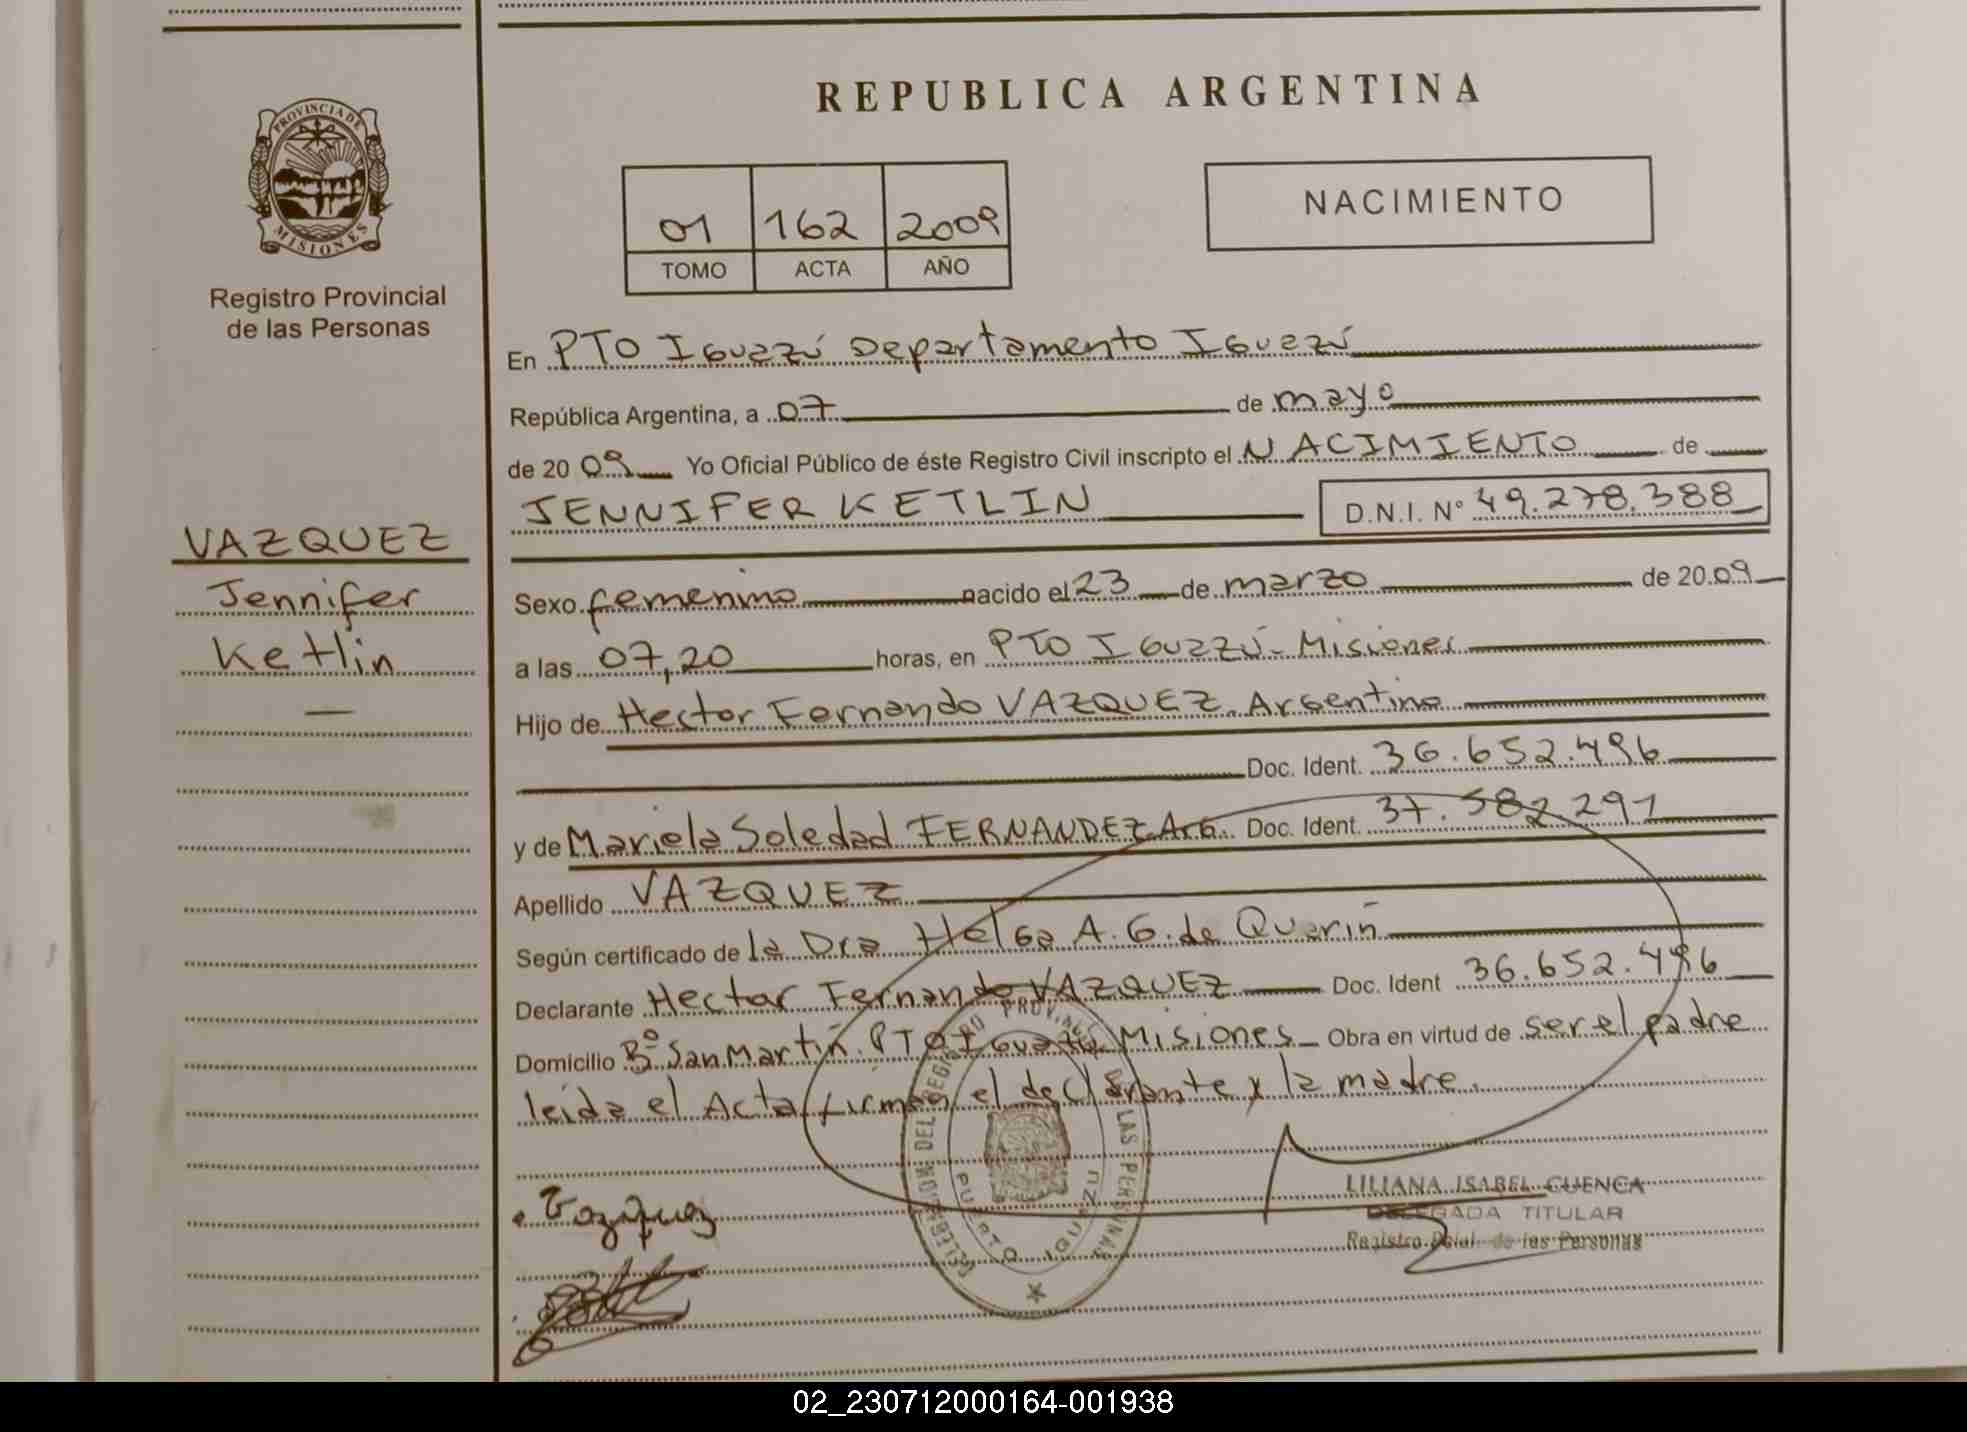 PROVINCIA DE
MISIONES
Registro Provincial
de las Personas
VAZQUEZ
Jennifer
Ketlin
REPUBLICA ARGENTINA
01 162 2009
TOMO ACTA AÑO
NACIMIENTO
En PTO Iguazú Departamento Iguazú
República Argentina, a 07 de mayo
de 20 09 Yo Oficial Público de éste Registro Civil inscripto el NACIMIENTO de
JENNIFER KETLIN D.N.I. Nº 49.278.388
Sexo femenino nacido el 23 de marzo de 20 09
a las 07,20 horas, en PTO Iguazú - Misiones
Hijo de Hector Fernando VAZQUEZ. Argentino
Doc. Ident. 36.652.496
y de Mariela Soledad FERNANDEZ Arg. Doc. Ident. 37.582.291
Apellido VAZQUEZ
Según certificado de la Dra Helga A. G. de Quarin
Declarante Hector Fernando VAZQUEZ Doc. Ident 36.652.496
Domicilio Bº San Martin. PTO Iguazú Misiones Obra en virtud de ser el padre
leida el Acta firman el declarante y la madre.
DELEGACION DEL REGISTRO PROVINCIAL DE LAS PERSONAS
PUERTO IGUAZU
Vazquez
LILIANA ISABEL CUENCA
DELEGADA TITULAR
Registro Pcial. de las Personas
02_230712000164-001938